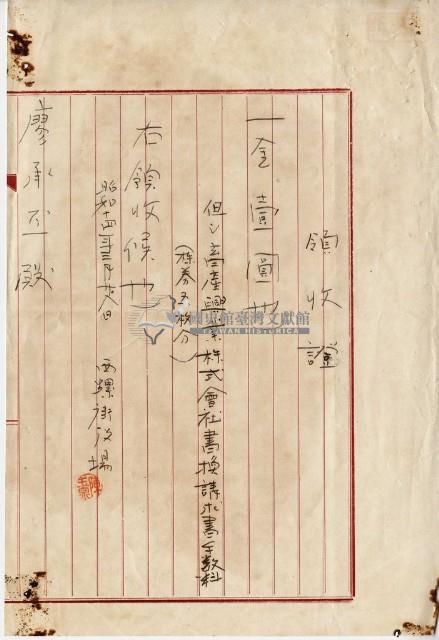 領收證
一金壹圓也
但シ畜產興業株式會社書換請求書手數料
(株券五枚分)
右領收候也
昭和十四年三月廿八日
西螺街役場
廖承丕殿
國史館臺灣文獻館
TAIWAN HISTORICA